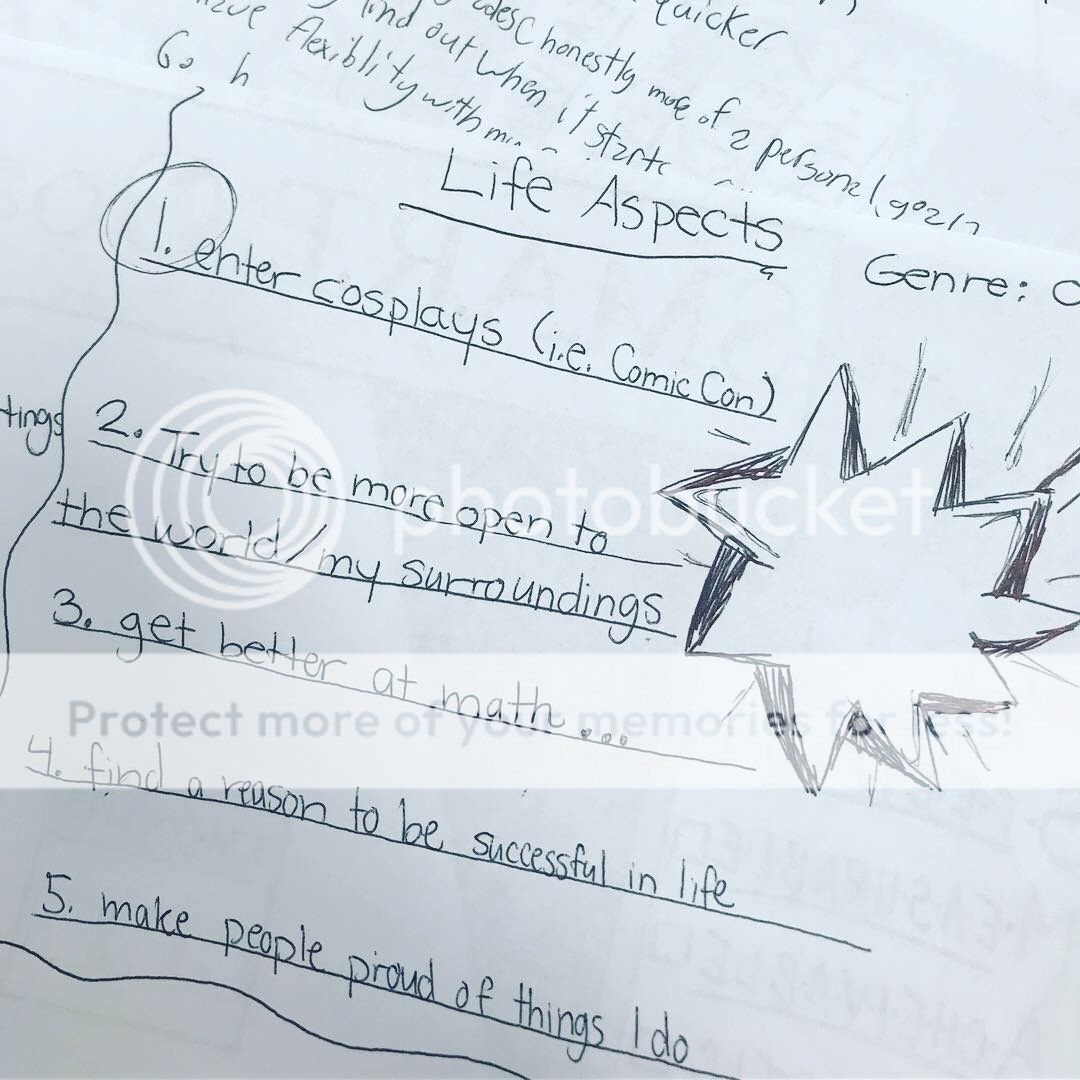 quicker
honestly more of a personal goal
find out when it starts
flexiblity with
Go h
Life Aspects
Genre:
1. enter cosplays (i.e. Comic Con)
tings
2. Try to be more open to
the world/my surroundings
3. get better at math...
4. find a reason to be successful in life
5. make people proud of things I do
photobucket
Protect more of your memories for less!